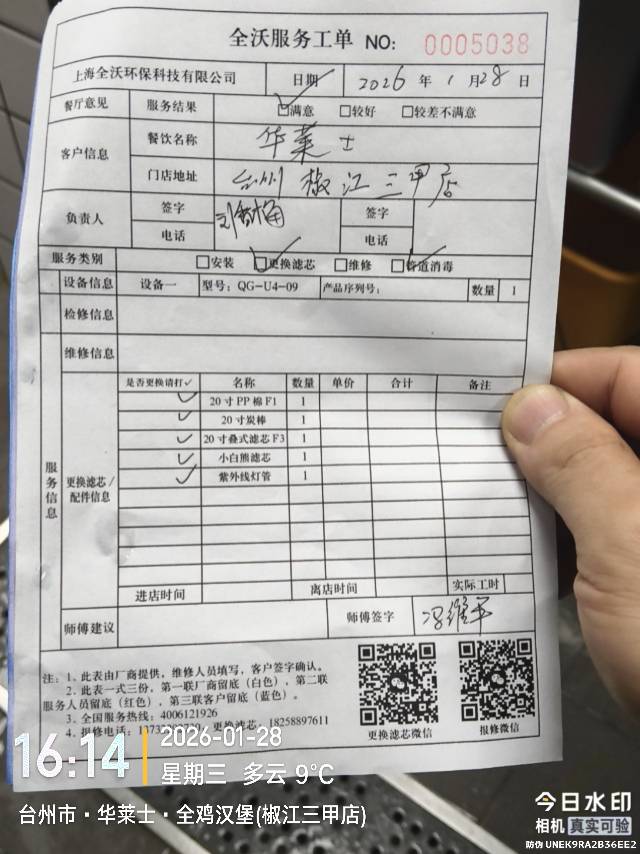 全沃服务工单 NO: 0005038
上海全沃环保科技有限公司 日期 2026 年 1 月 28 日
餐厅意见 服务结果 ☑满意 □较好 □较差不满意
客户信息 餐饮名称 华莱士
门店地址 台州椒江三甲店
负责人 签字 签字
电话 电话
服务类别 □安装 ☑更换滤芯 □维修 ☑管道消毒
设备信息 设备一 型号：QG-U4-09 产品序列号： 数量 1
检修信息
维修信息
服务信息
更换滤芯/配件信息
是否更换请打✓ 名称 数量 单价 合计 备注
✓ 20寸PP棉F1 1
✓ 20寸炭棒 1
✓ 20寸叠式滤芯F3 1
✓ 小白熊滤芯 1
✓ 紫外线灯管 1
进店时间 离店时间 实际工时
师傅建议 师傅签字
注：1、此表由厂商提供，维修人员填写，客户签字确认。
2、此表一式三份，第一联厂商留底（白色），第二联
服务人员留底（红色），第三联客户留底（蓝色）。
3、全国服务热线：4006121926
4、报修电话： 更换滤芯：18258897611
更换滤芯微信 报修微信
16:14 2026-01-28
星期三 多云 9℃
台州市·华莱士·全鸡汉堡(椒江三甲店)
今日水印
相机 真实可验
防伪 UNEK9RA2B36EE2